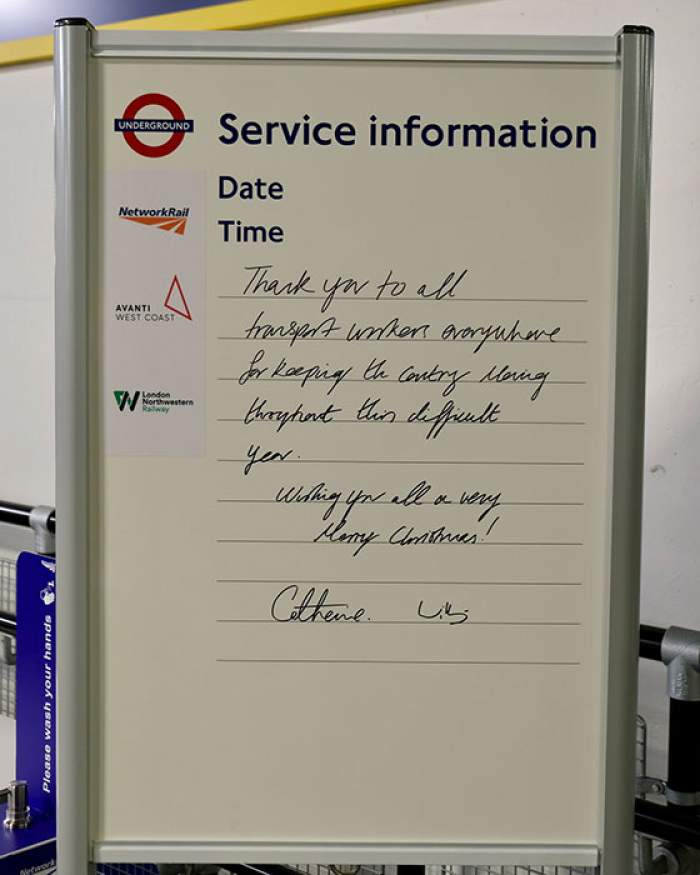 UNDERGROUND
Service information
Date
Time
NetworkRail
AVANTI
WEST COAST
London
Northwestern
Railway
Thank you to all
transport workers everywhere
for keeping the country moving
throughout this difficult
year.
Wishing you all a very
Merry Christmas!
Catherine. William
Please wash your hands
Network